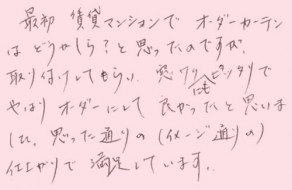 最初 賃貸マンションで オーダーカーテン
はどうかしら?と思ったのですが、
取り付けしてもらい、窓ワクにもピッタリで
やはりオーダーにして 良かったと思いま
した。思った通りの(イメージ通りの)
仕上がりで 満足しています。